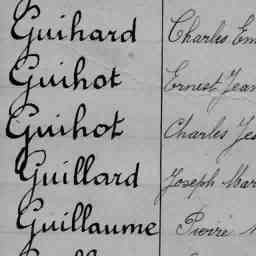 Guihard Charles Em
Guihot Ernest Jean
Guihot Charles Je
Guillard Joseph Mar
Guillaume Pierre